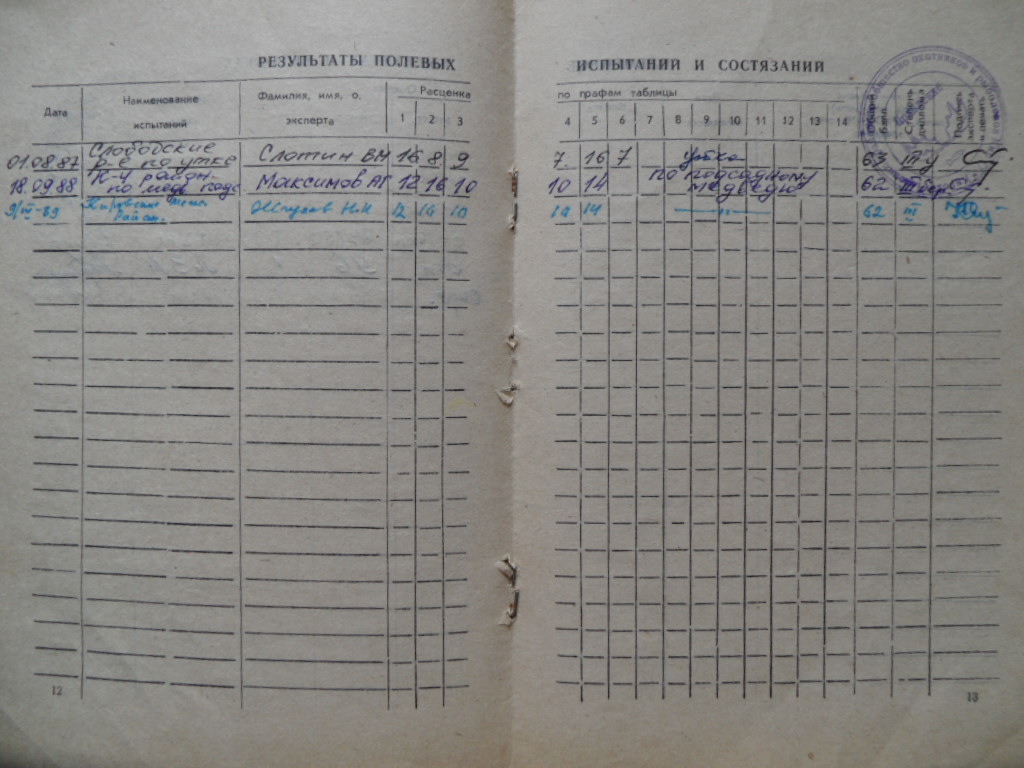 РЕЗУЛЬТАТЫ ПОЛЕВЫХ ИСПЫТАНИЙ И СОСТЯЗАНИЙ
Дата
Наименование
испытаний
Фамилия, имя, о.
эксперта
Расценка по графам таблицы
1 2 3 4 5 6 7 8 9 10 11 12 13 14
Общий балл
Степень диплома
Подпись эксперта, печать
01.08.87 Слободские р-е по утке Слотин ВМ 16 8 9 7 16 7 утка 63
18.09.88 К-й район. по медв Максимов АГ 12 16 10 10 14 по подсадному медведю 62
9/ -89 Кировские 12 16 10 10 14 62 III
12
13